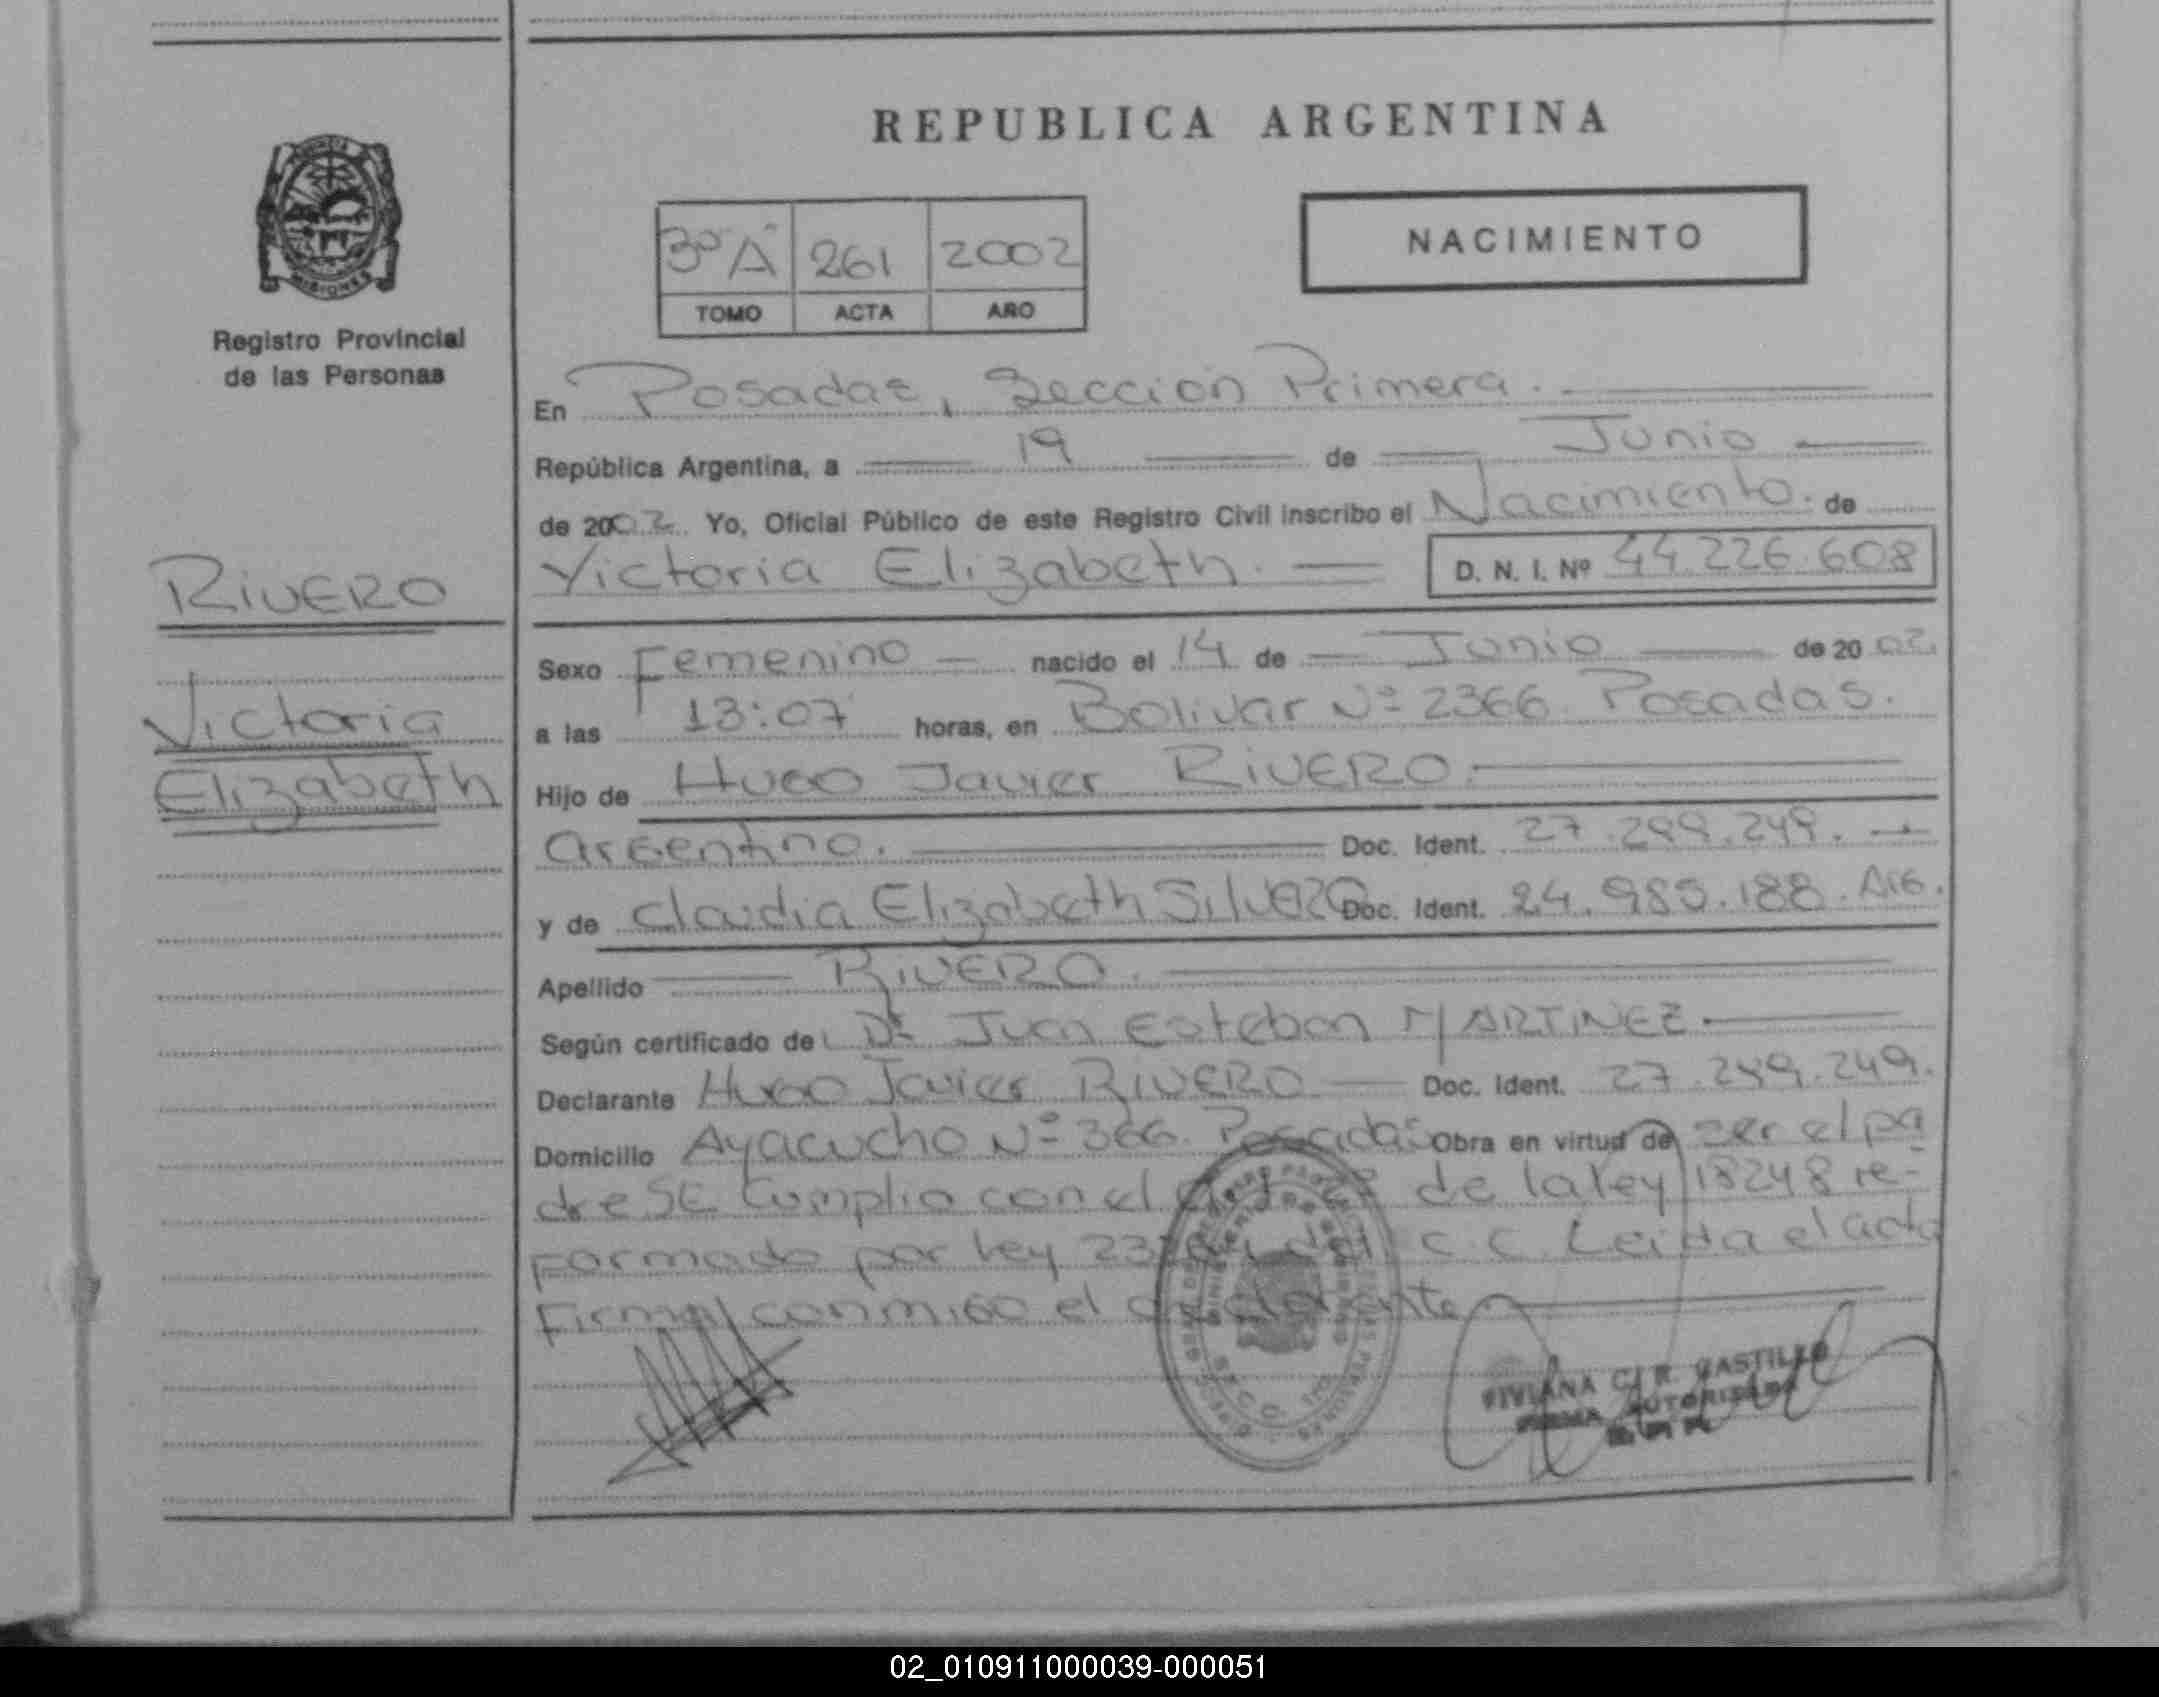 REPUBLICA ARGENTINA
PROVINCIA
MISIONES
Registro Provincial
de las Personas
3º "A" 261 2002
TOMO ACTA AÑO
NACIMIENTO
En Posadas, Sección Primera.
República Argentina, a 19 de Junio
de 2002. Yo, Oficial Público de este Registro Civil inscribo el Nacimiento. de
Victoria Elizabeth. D. N. I. Nº 44.226.608
RIVERO
Victoria
Elizabeth
Sexo Femenino nacido el 14 de Junio de 2002.
a las 13:07 horas, en Bolivar Nº 2366. Posadas.
Hijo de Hugo Javier RIVERO.
argentino. Doc. Ident. 27.289.249.
y de Claudia Elizabeth SILVERO Doc. Ident. 24.985.188. Arg.
Apellido RIVERO.
Según certificado de Dr Juan Esteban MARTINEZ.
Declarante Hugo Javier RIVERO Doc. Ident. 27.289.249.
Domicilio Ayacucho Nº 366. Posadas Obra en virtud de ser el pa
dre SE Cumplio con el de la ley 18248 re-
formado por ley del C.C. Leída el acta
Firma conmigo el declarante
VIVIANA C. R. CASTILLO
FIRMA AUTORIZADA
02_010911000039-000051